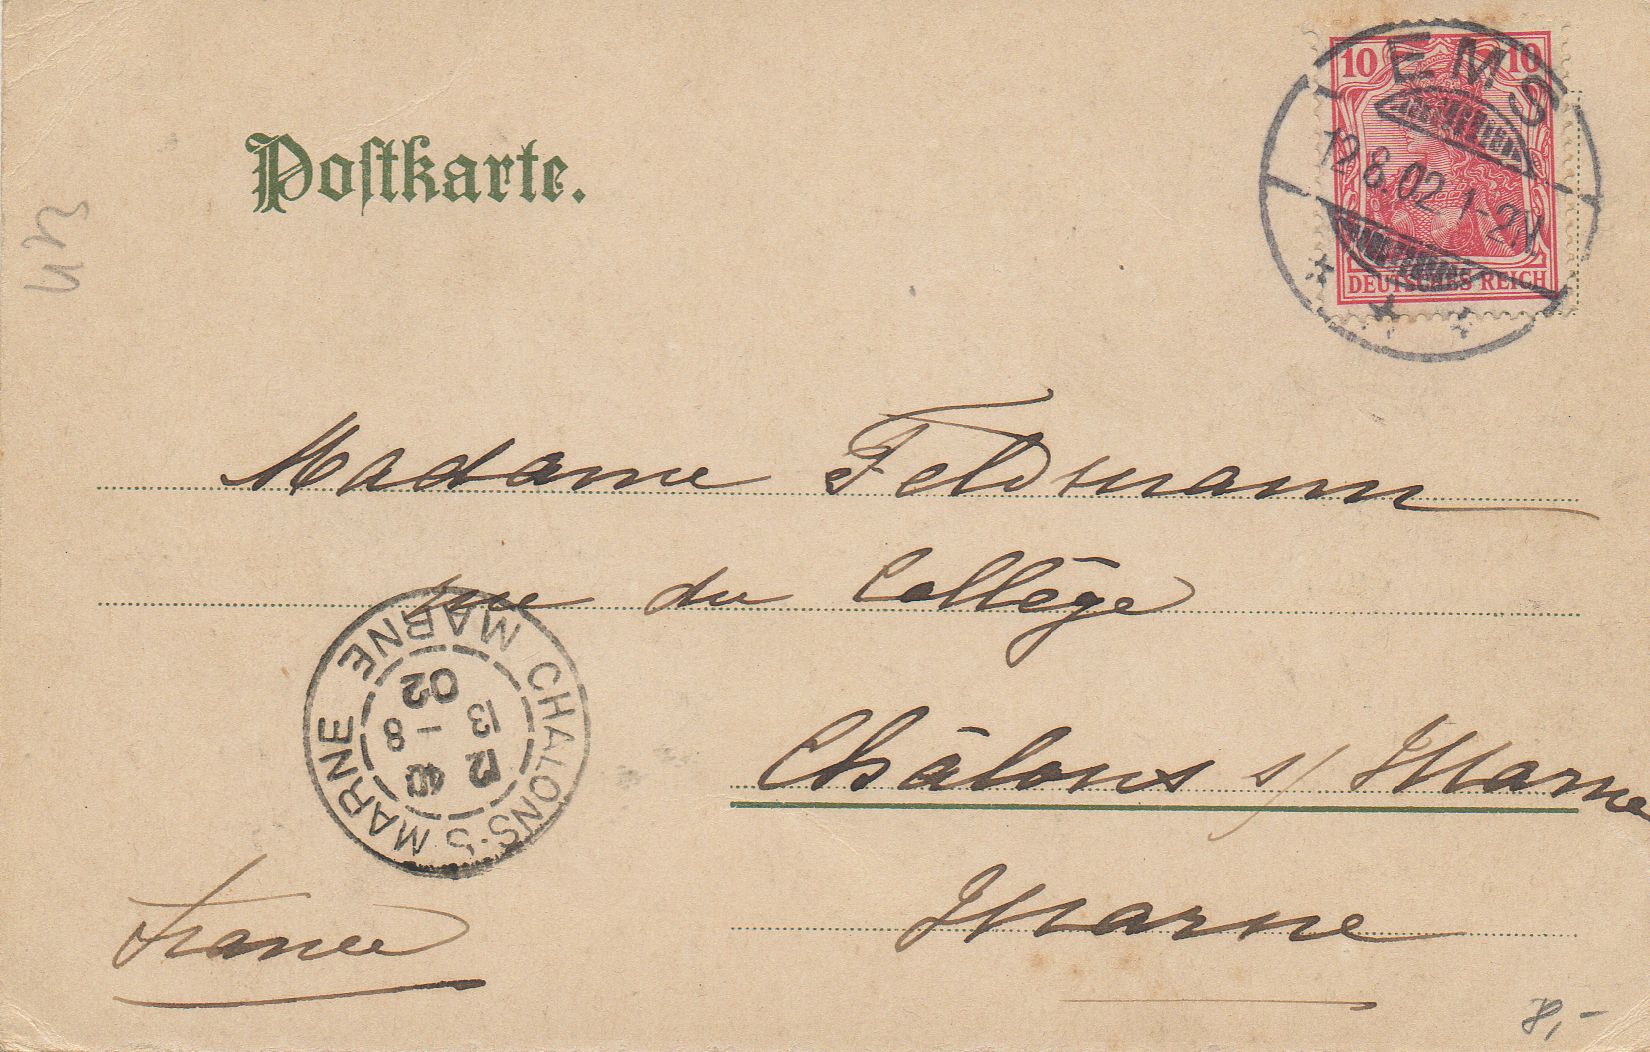 Postkarte.
10 10
DEUTSCHES REICH
EMS
12.8.02.1-2N
Madame Feldmann
rue du Collège
Châlons s/ Marne
Marne
France
CHALONS-S-MARNE
MARNE
13
8
02